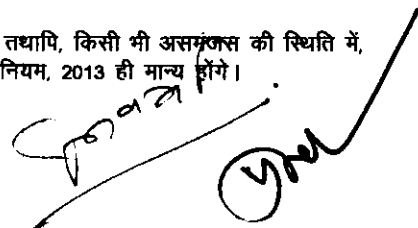 तथापि, किसी भी असमंजस की स्थिति में,
नियम, 2013 ही मान्य होंगे।